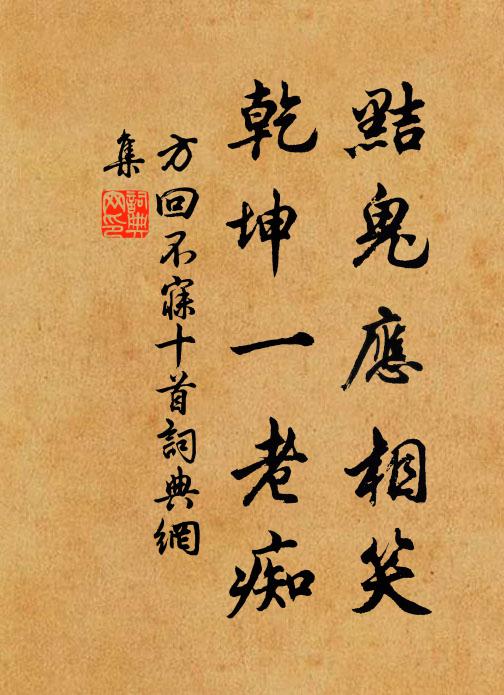 黠鬼應相笑
乾坤一老痴
方回不寐十首詞典網
集
詞典
网印